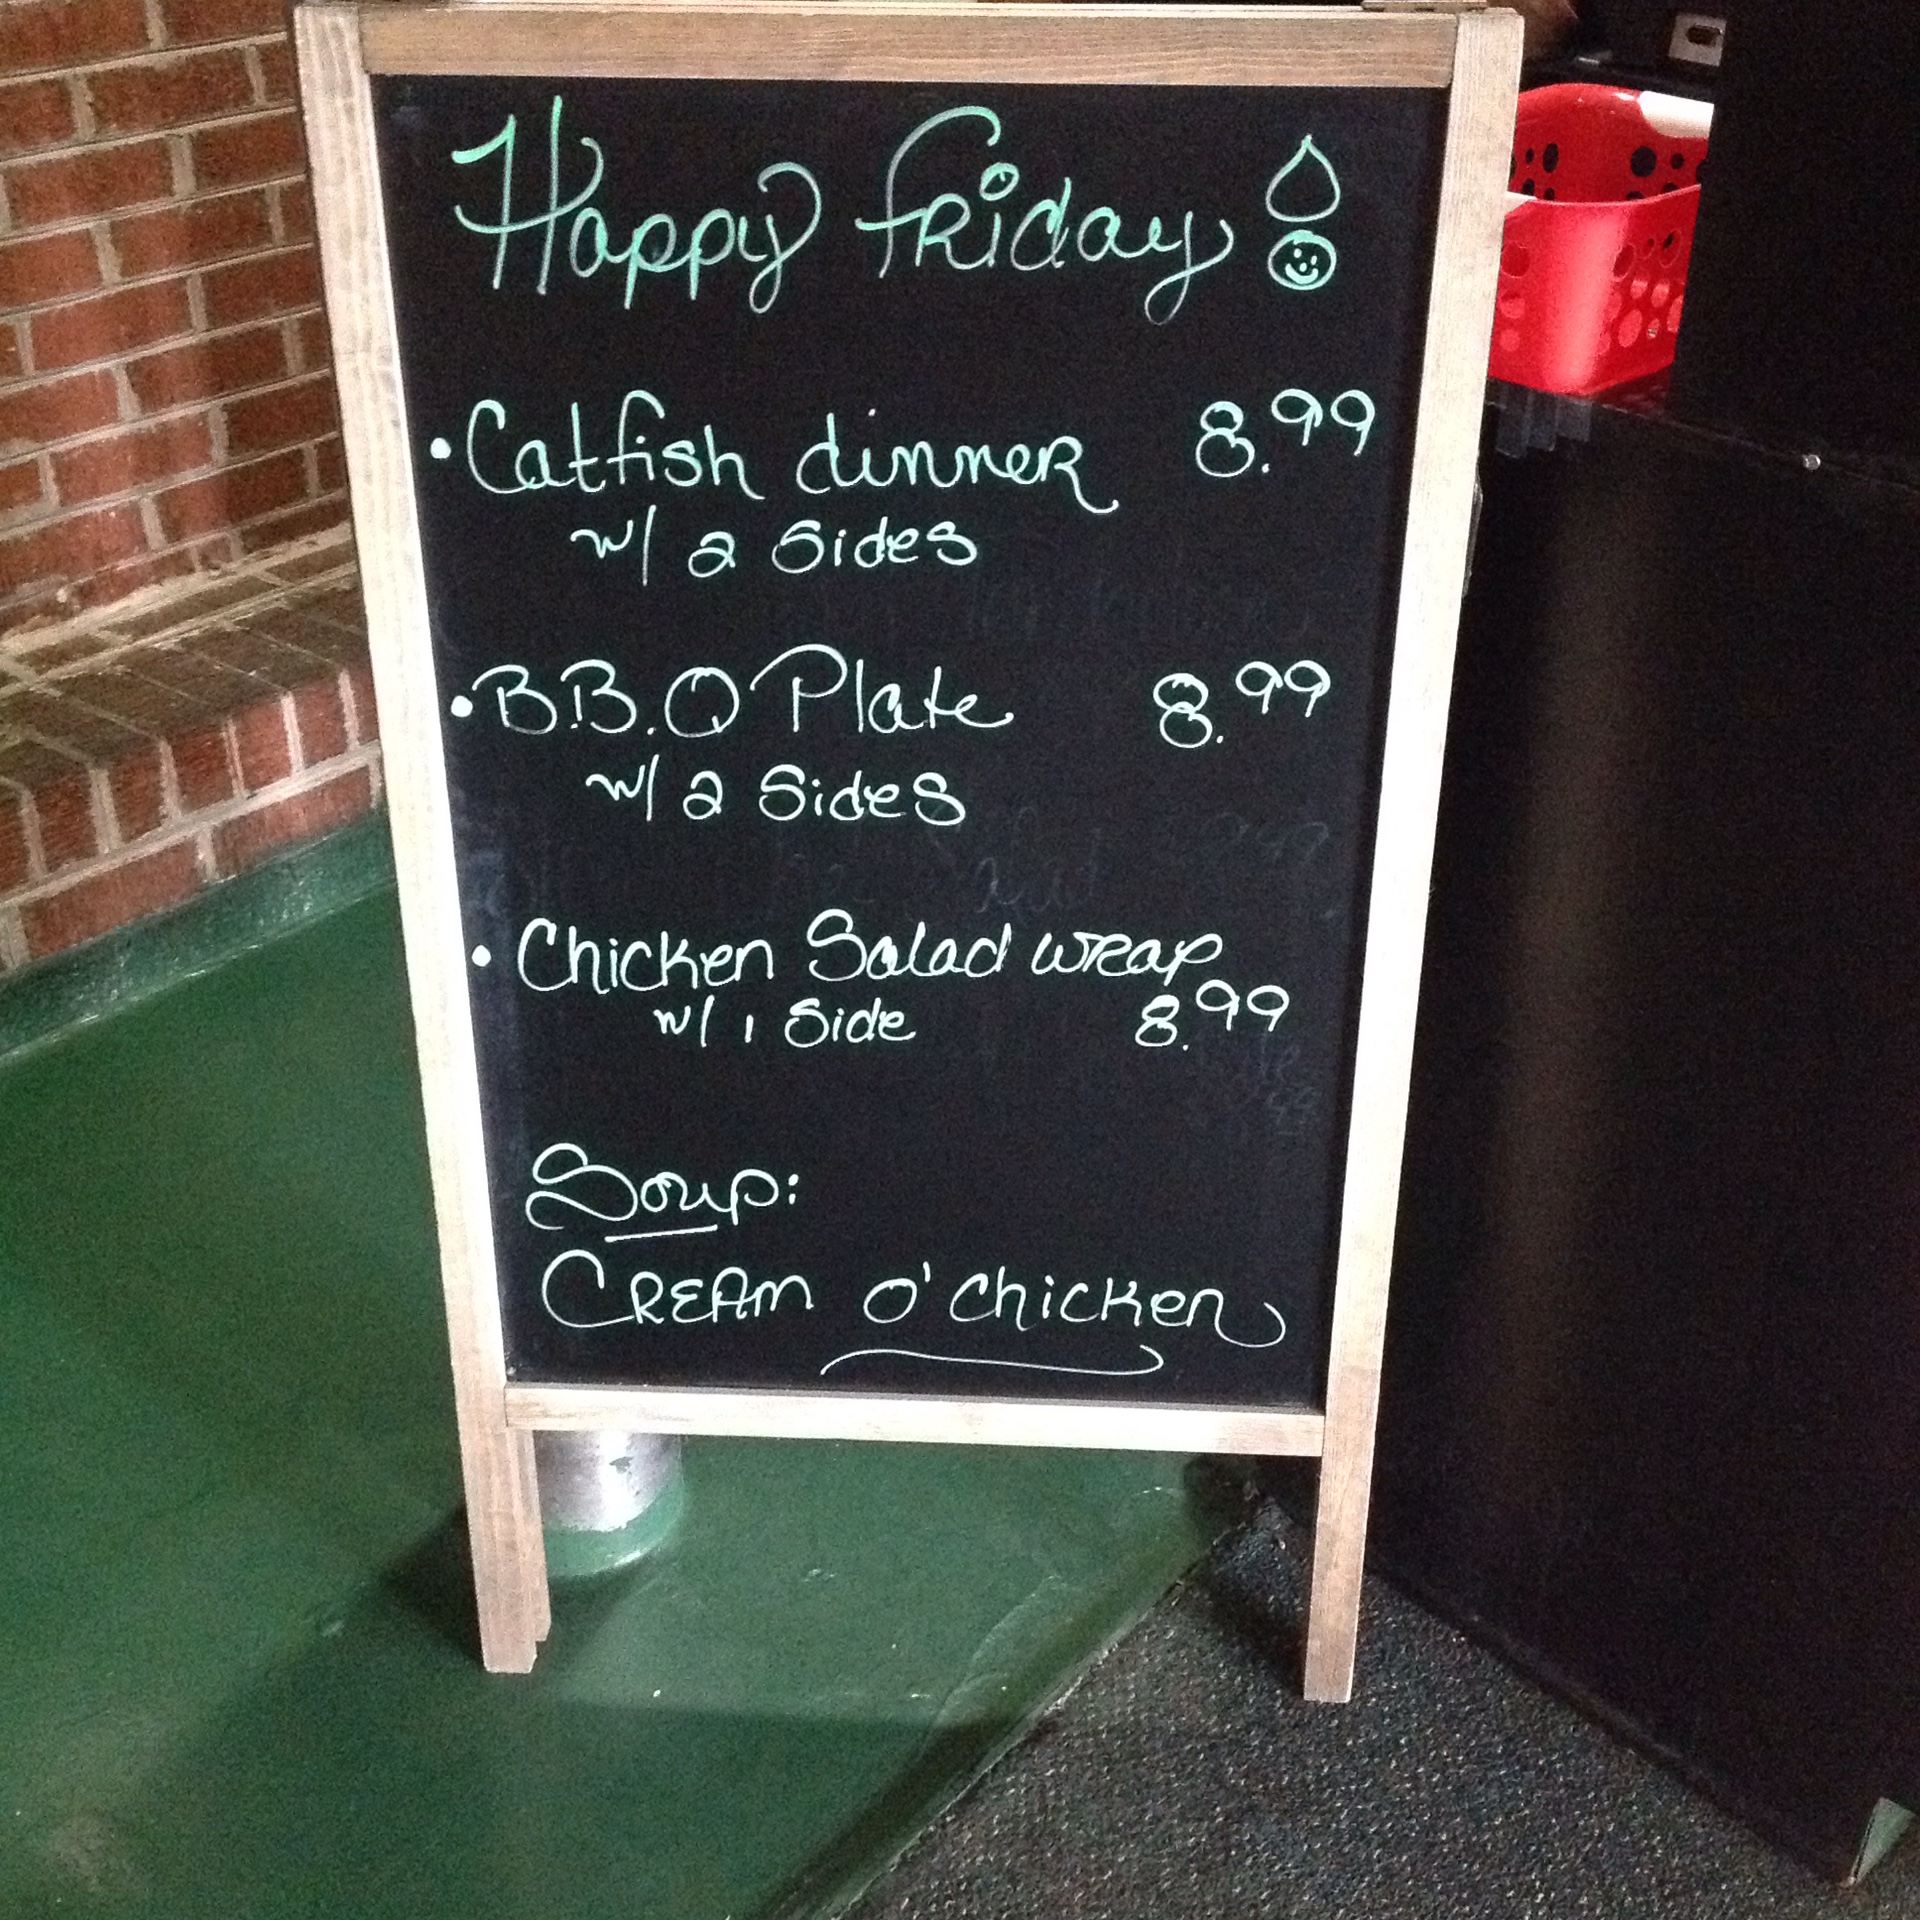 Happy Friday!
• Catfish dinner 8.99
w/ 2 Sides
• B.B.Q Plate 8.99
w/ 2 Sides
• Chicken Salad wrap
w/ 1 Side 8.99
Soup:
CREAM o' chicken